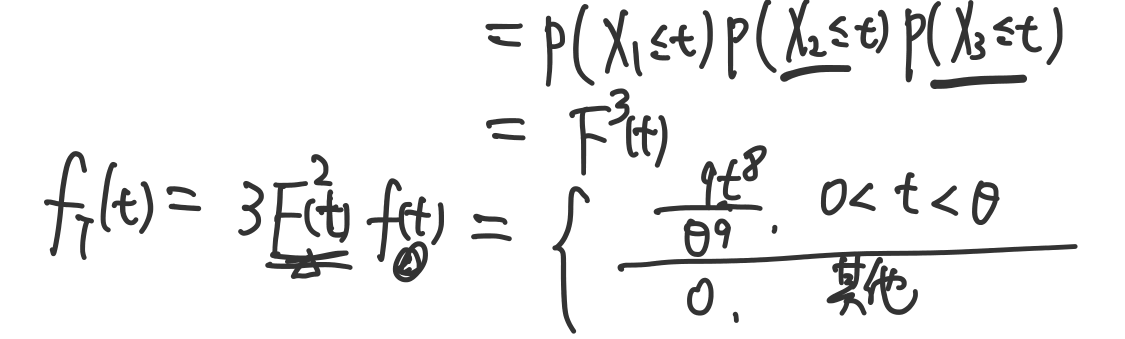 = P(X₁≤t) P(X₂≤t) P(X₃≤t)
= F³(t)
f_T(t) = 3F²(t) f(t) = { 9t⁸/θ⁹ . 0 < t < θ
0 , 其他